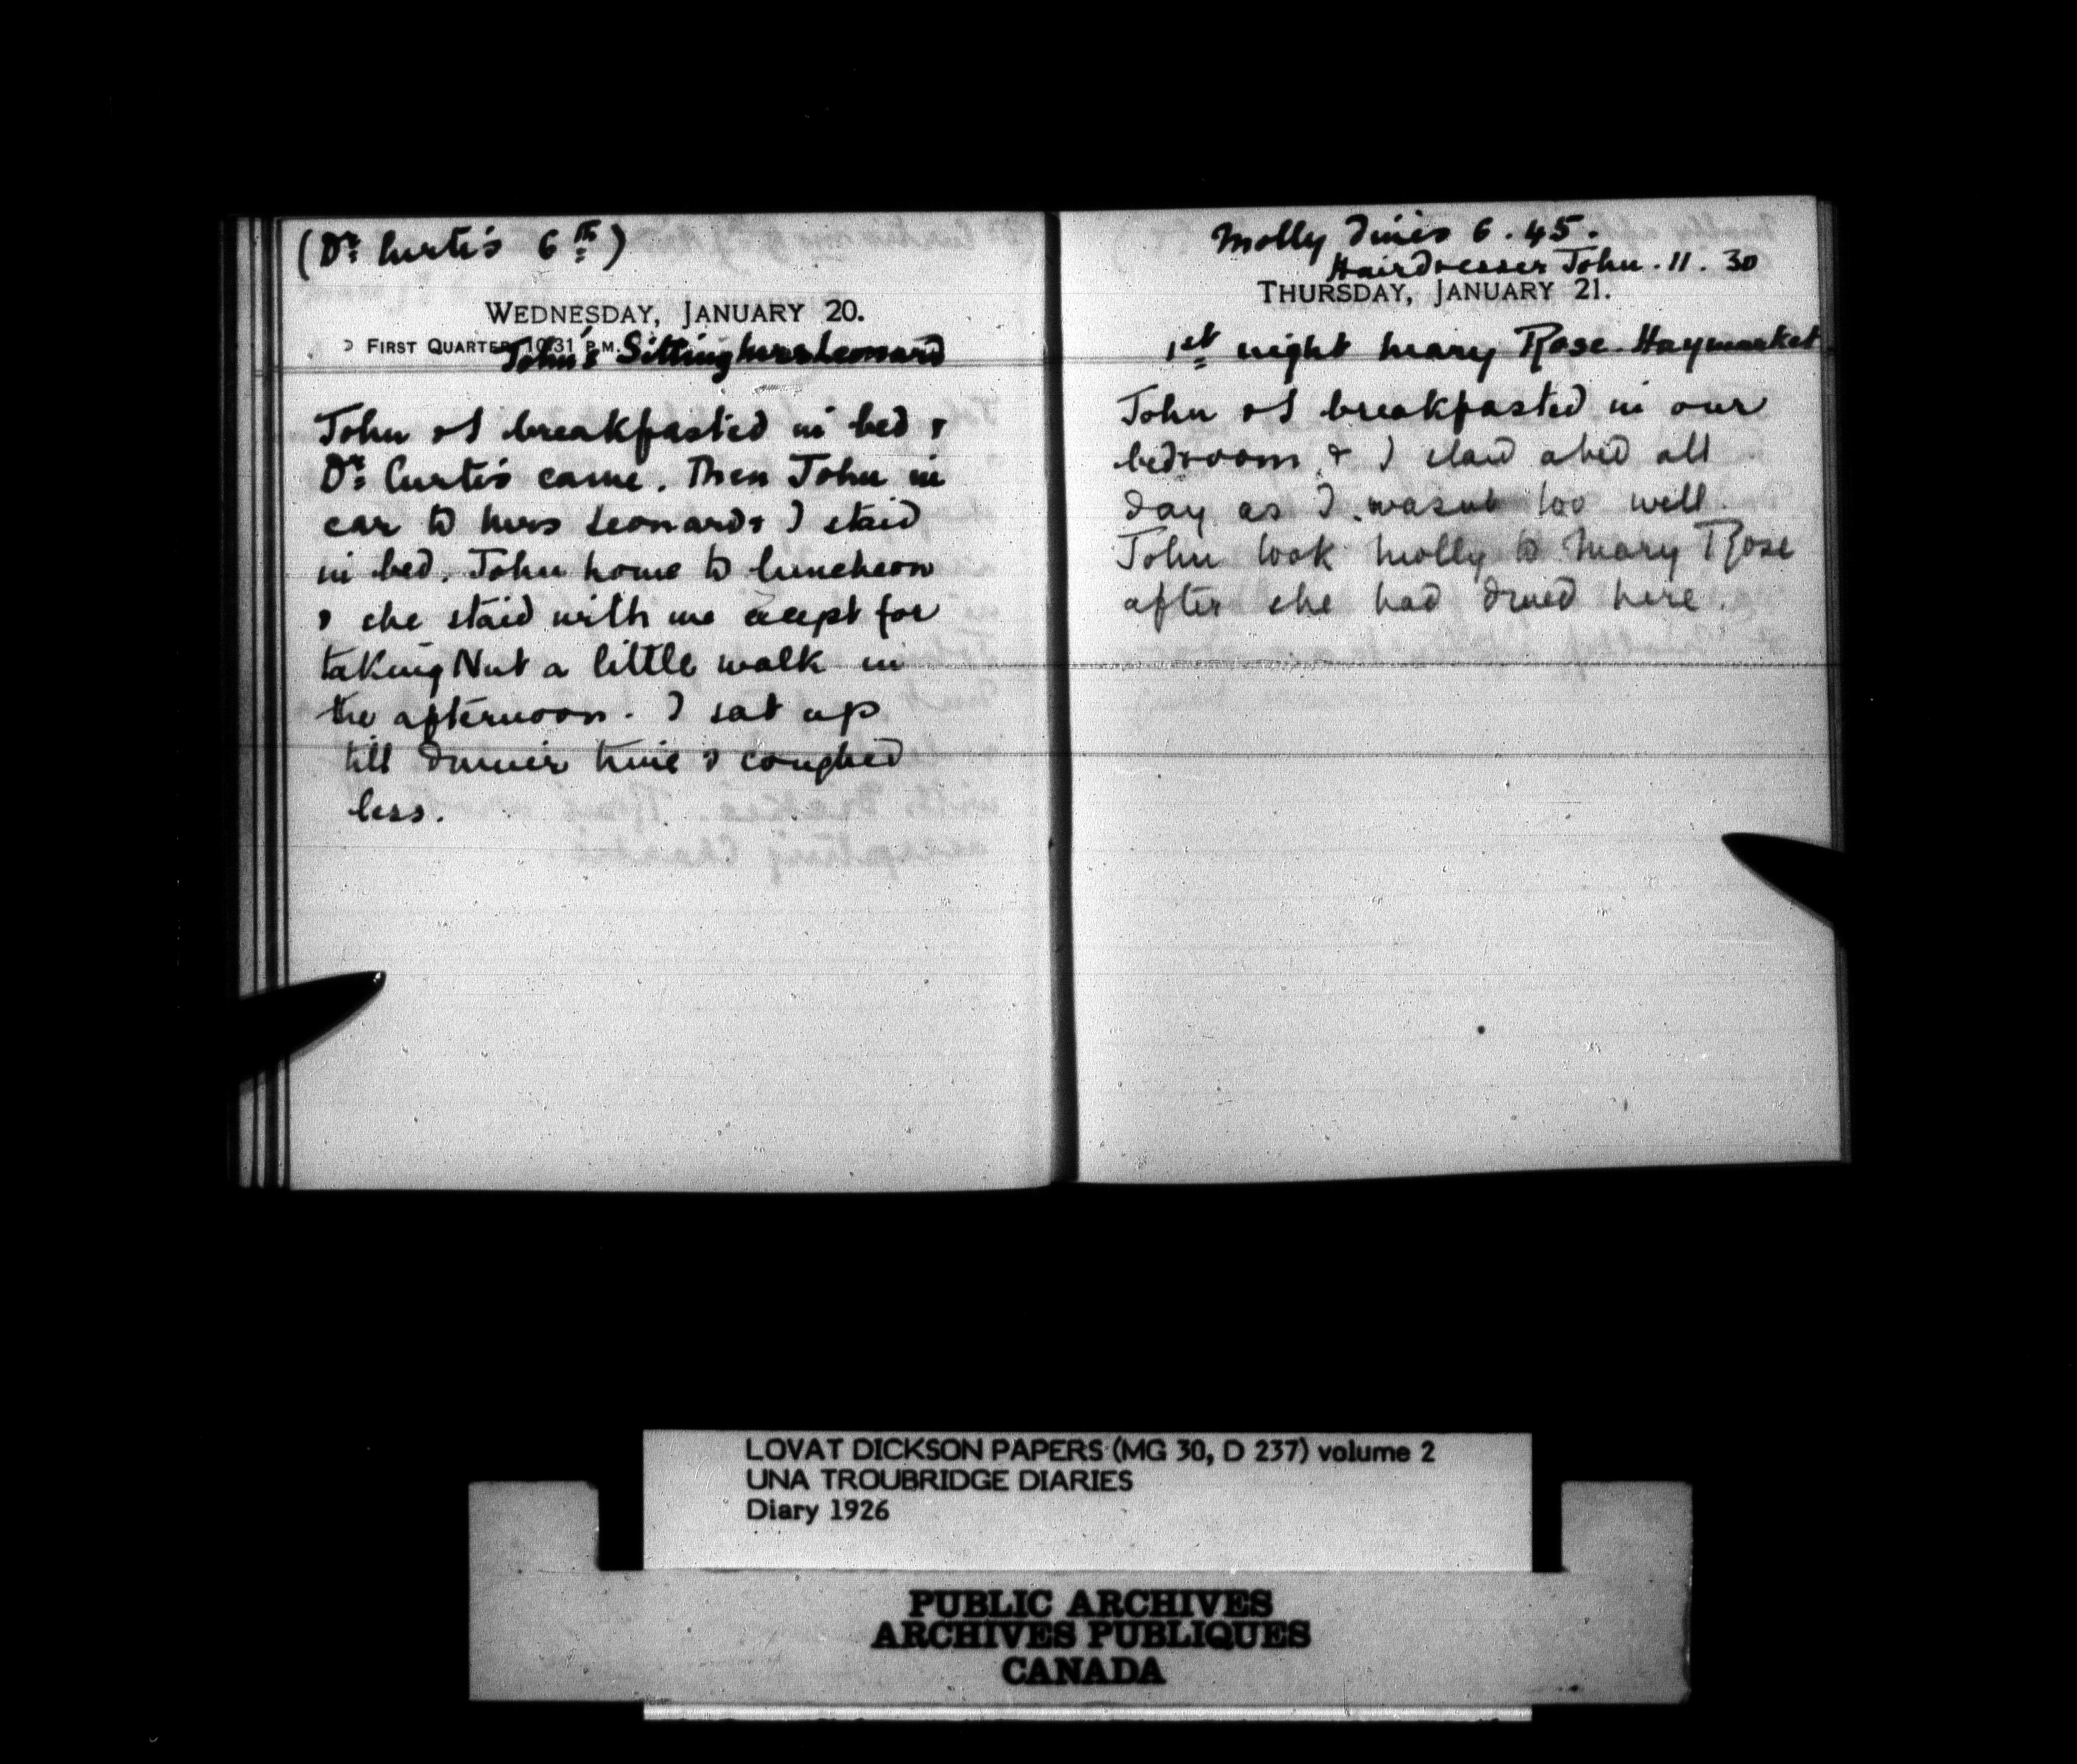 (Dr. Curtis 6th)
WEDNESDAY, JANUARY 20.
☽ FIRST QUARTER, 10.31 P.M.
John's Sitting Mrs Leonard
John & I breakfasted in bed &
Dr. Curtis came. Then John in
car to Mrs Leonard & I staid
in bed. John home to luncheon
& she staid with me except for
taking Nut a little walk in
the afternoon. I sat up
till dinner time & coughed
less.
Molly dines 6.45.
Hairdresser John. 11.30
THURSDAY, JANUARY 21.
1st night Mary Rose Haymarket
John & I breakfasted in our
bedroom & I staid abed all
day as I wasnt too well.
John took Molly to Mary Rose
after she had dined here.
LOVAT DICKSON PAPERS (MG 30, D 237) volume 2
UNA TROUBRIDGE DIARIES
Diary 1926
PUBLIC ARCHIVES
ARCHIVES PUBLIQUES
CANADA